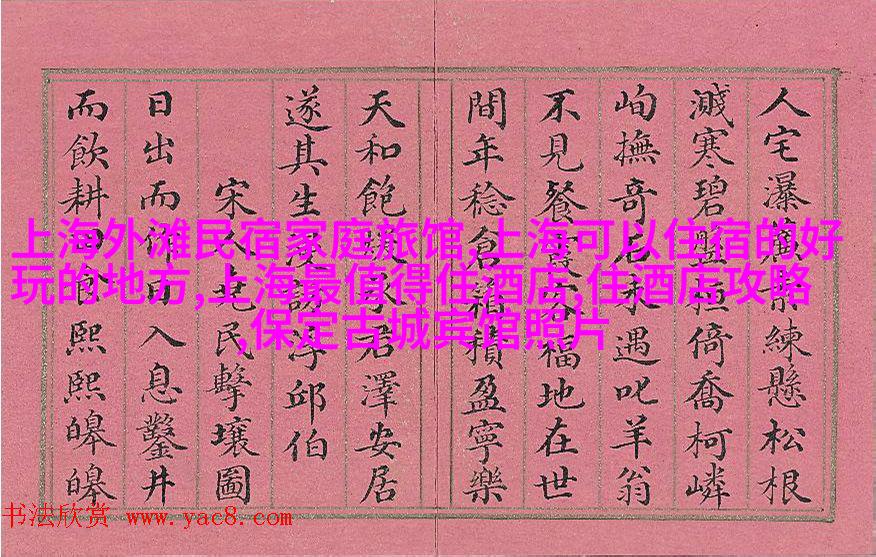 人宅瀑練懸松根
濺寒碧盤倚喬柯嶙
峋撫奇石遇叱羊翁
不見餐霞客福地在世
間年稔倉箱積盈寧樂
天和飽君澤安居
遂其生浮邱伯
宋人民擊壤圖
日出而作日入息鑿井
而飲耕田食熙熙皞皞
上海外滩民宿家庭旅馆,上海可以住宿的好
玩的地方,上海最值得住酒店,住酒店攻略
,保定古城宾馆照片
书法欣赏 www.yac8.com